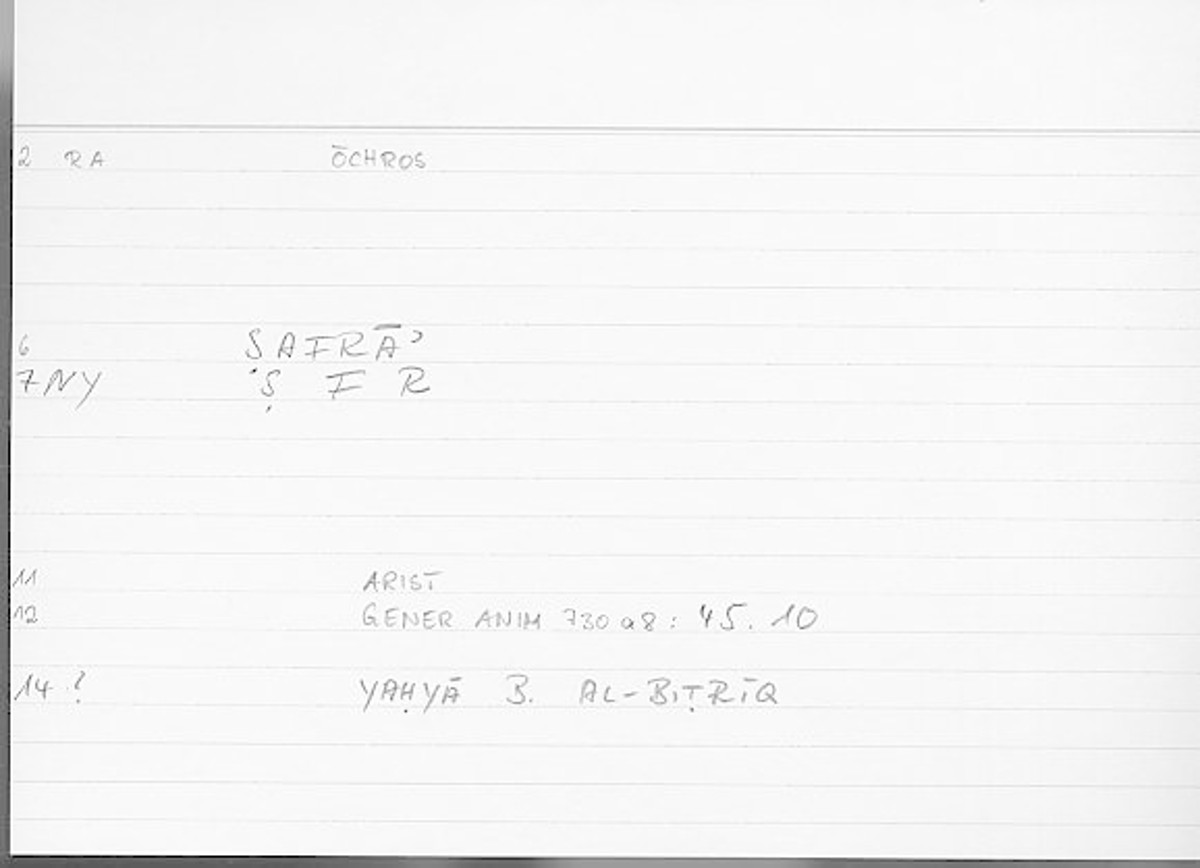 2 RA ŌCHROS
6 ṢAFRĀʾ
7 NY Ṣ F R
11 ARIST
12 GENER ANIM 730 a 8 : 45.10
14 ? YAḤYĀ B. AL-BIṬRĪQ